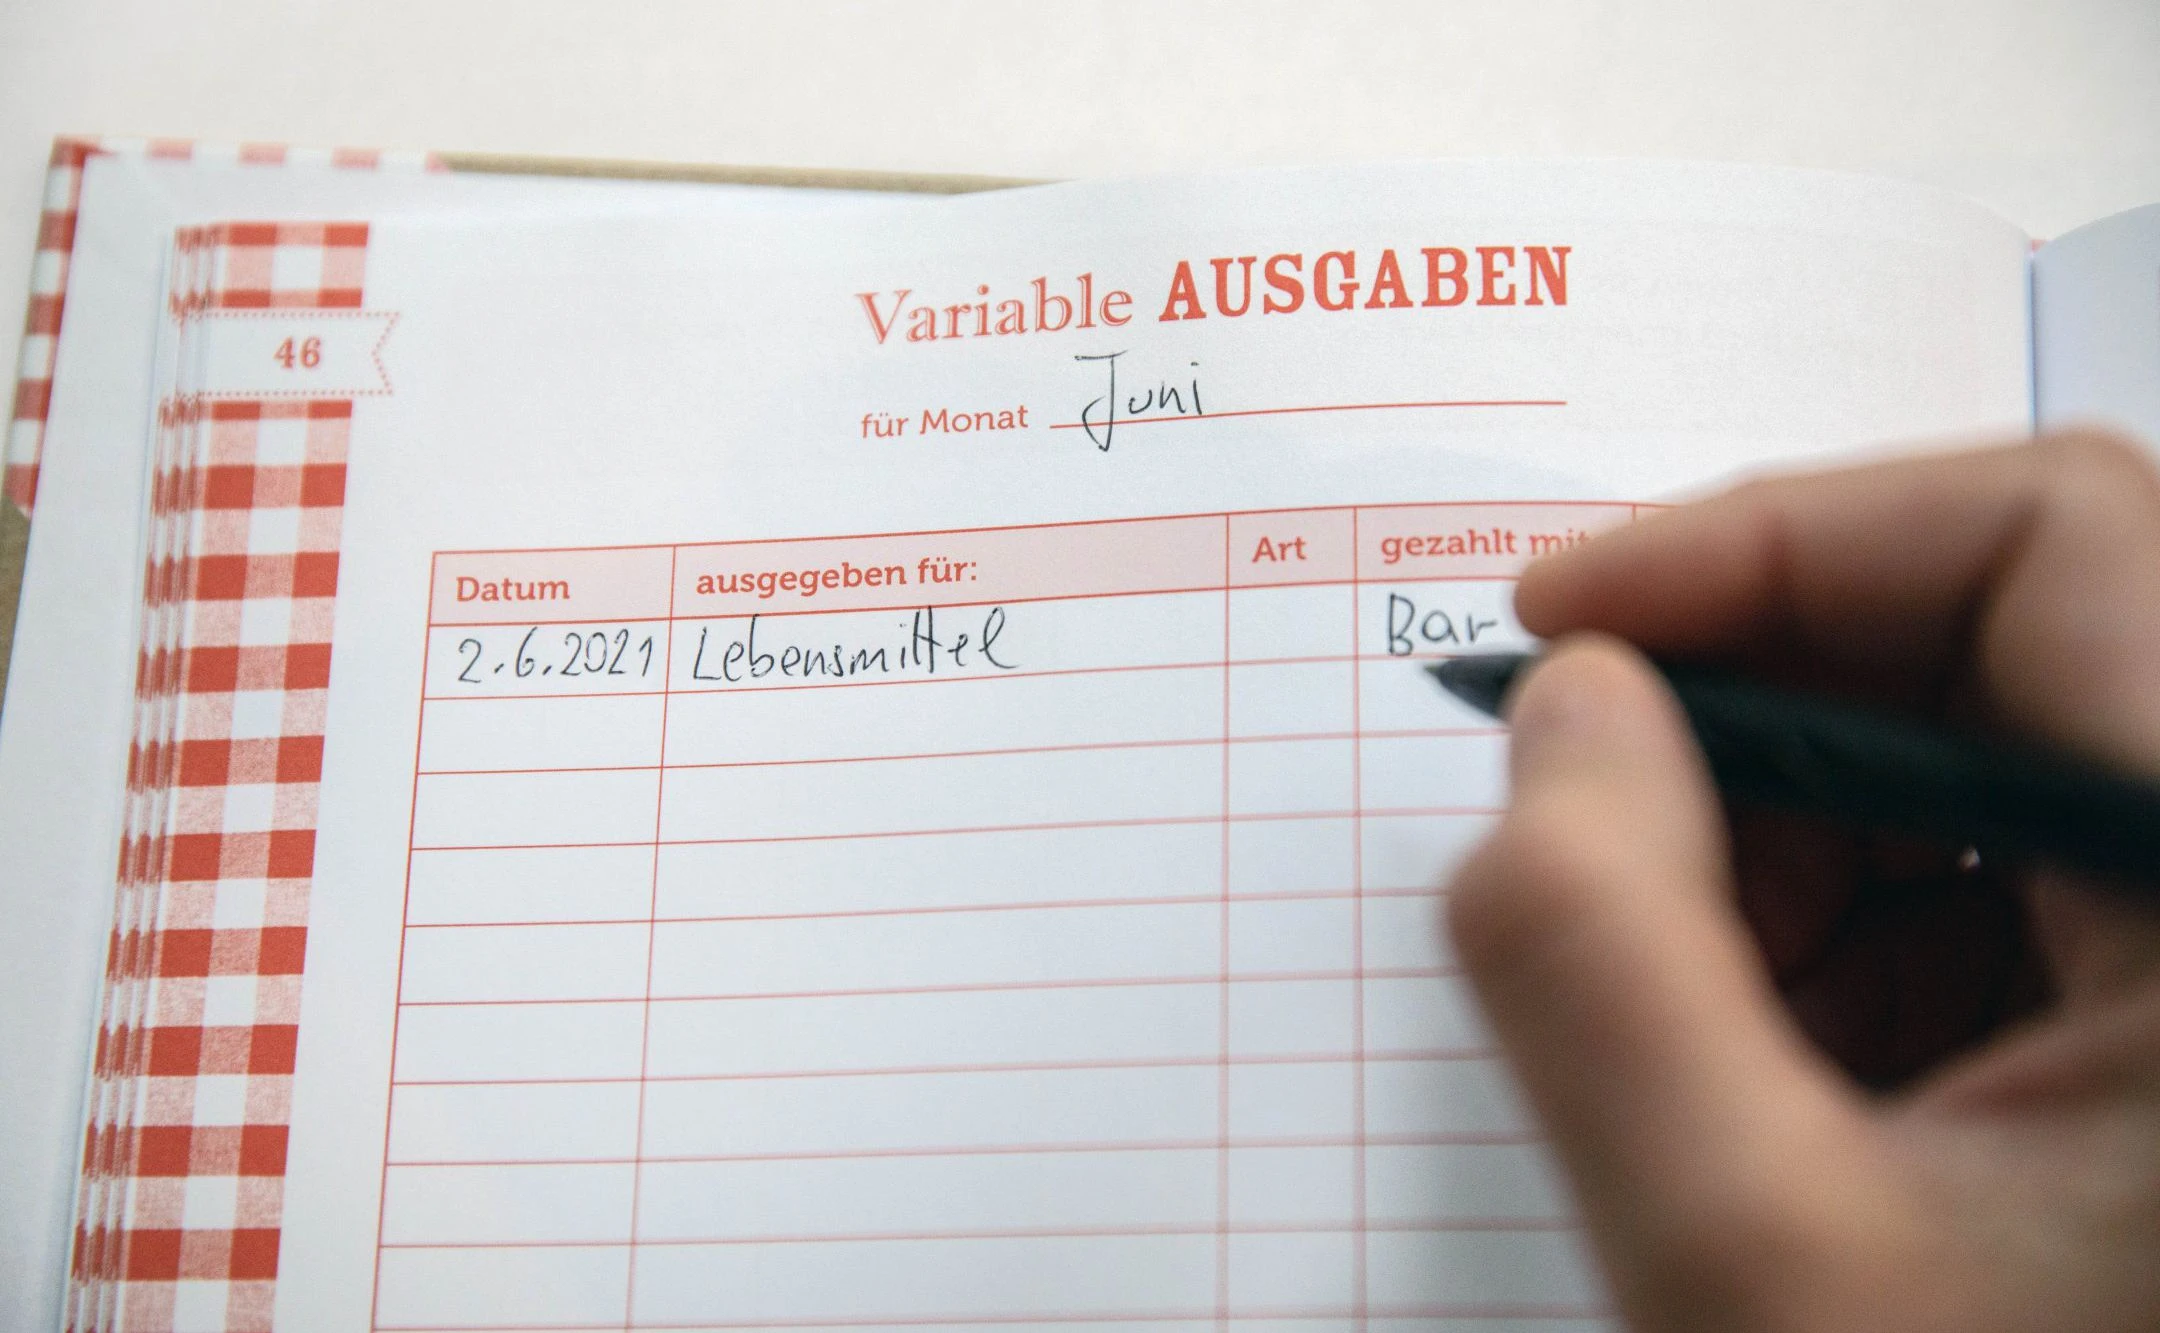 46
Variable AUSGABEN
für Monat Juni
Datum ausgegeben für: Art gezahlt mit
2.6.2021 Lebensmittel Bar